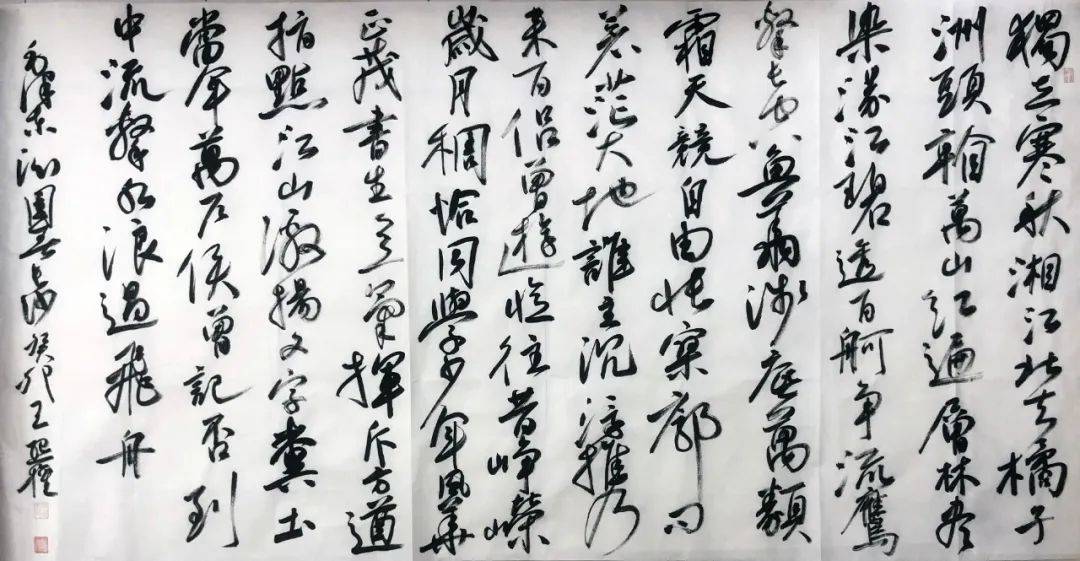 獨立寒秋湘江北去橘子
洲頭看萬山紅遍層林盡
染漫江碧透百舸爭流鷹
擊長空魚翔淺底萬類
霜天競自由悵寥廓問
蒼茫大地誰主沉浮攜
來百侶曾遊憶往昔崢嶸
歲月稠恰同學少年風華
正茂書生意氣揮斥方遒
指點江山激揚文字糞土
當年萬户侯曾記否到
中流擊水浪遏飛舟
毛澤東沁園春長沙癸卯王